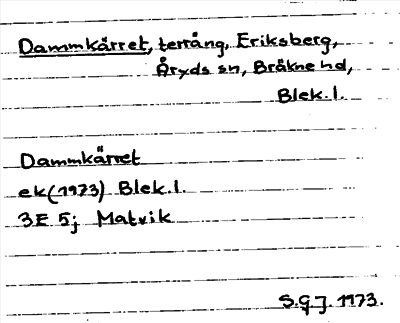 Dammkärret, terräng, Eriksberg,
Åryds sn, Bräkne hd,
Blek. l.
Dammkärret
ek (1973) Blek. l.
3E 5j Matvik
S.G.J. 1973.